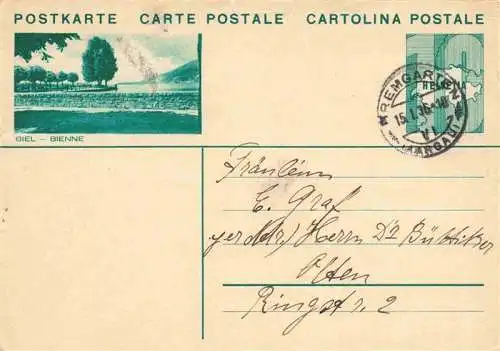 POSTKARTE CARTE POSTALE CARTOLINA POSTALE
BIEL – BIENNE
HELV
BREMGARTEN
15.I.36-18
VI
(AARGAU)
Fräulein
E. Graf
per Adr. Herrn Dr Büttiker
Olten
Ringstr. 2